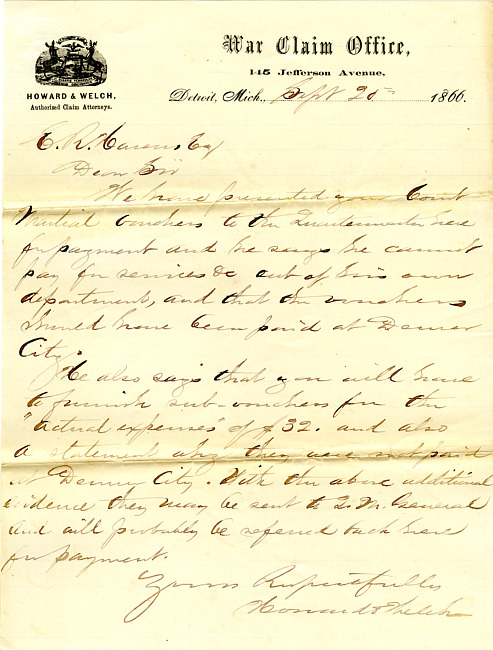 War Claim Office,
145 Jefferson Avenue.
HOWARD & WELCH,
Authorized Claim Attorneys.
Detroit, Mich., Sept 20th 1866.
C. R. Esq
Dear Sir
We have presented your Court
Martial vouchers to the Quartermaster here
for payment and he says he cannot
pay for services &c out of his own
department, and that the vouchers
should have been paid at Denver
City.
He also says that you will have
to furnish sub-vouchers for the
"actual expenses of $32. and also
a statement why they were not paid
at Denver City. With the above additional
evidence they may be sent to Q. M. General
and will probably be referred back here
for payment.
Yours Respectfully
Howard & Welch